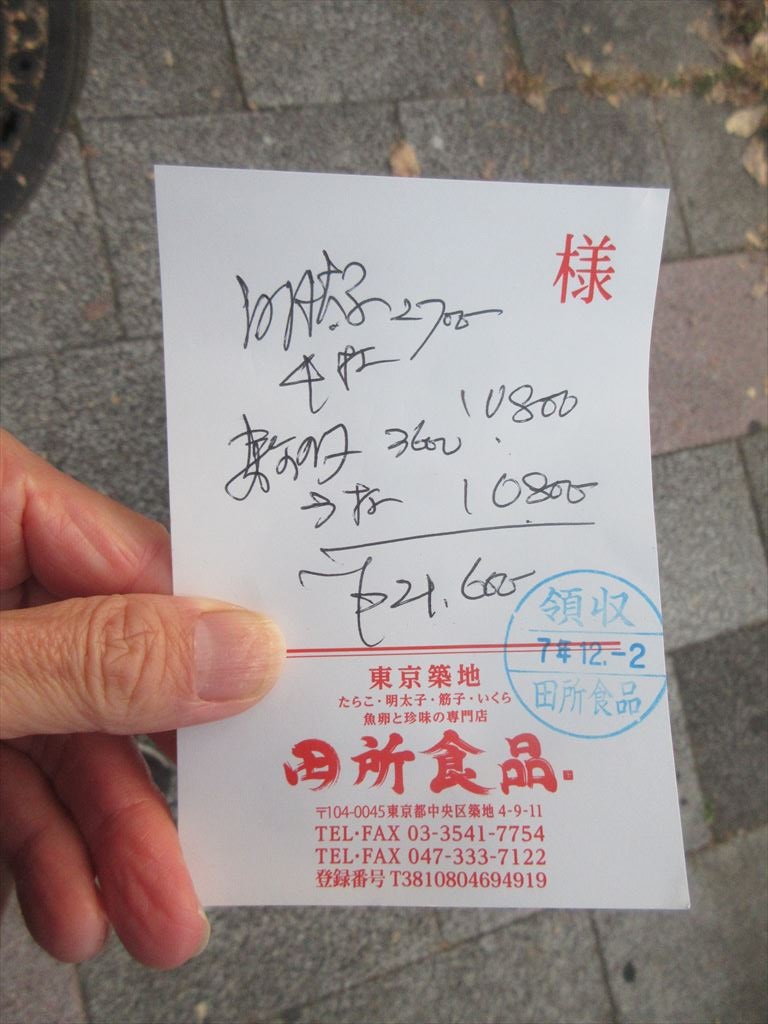 様
明太子 2700
4
10800
数の子 3600
10800
¥21,600
領収
7年12.-2
田所食品
東京築地
たらこ・明太子・筋子・いくら
魚卵と珍味の専門店
田所食品
〒104-0045東京都中央区築地4-9-11
TEL・FAX 03-3541-7754
TEL・FAX 047-333-7122
登録番号 T3810804694919